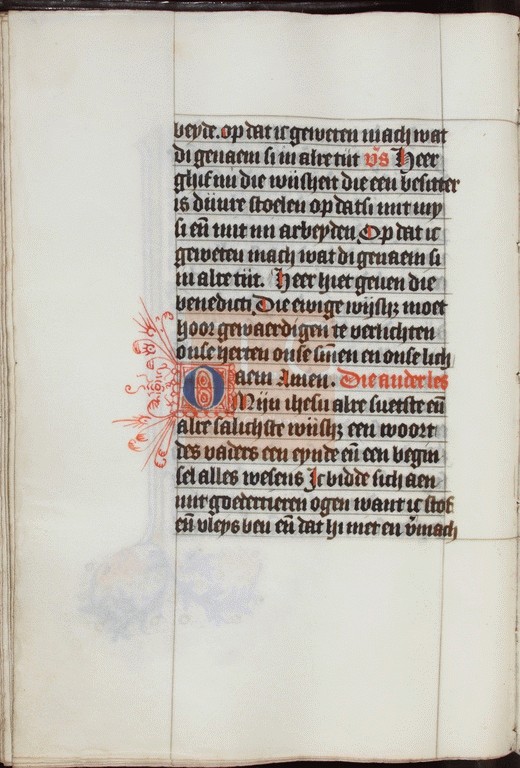 beyde. op dat ic geweten mach wat
di genaem si in alre tijt v̄s Heer
ghif mi die wijsheit die een besitter
is dijnre stoelen op datsi mit my
si eñ mit mi arbeyden Op dat ic
geweten mach wat di genaem si
in alre tijt. Heer hiet geuen die
benedicti Die ewige wijshꝫ moet
hoor gewaerdigen te verlichten
onse herten onse sinnen en onse lich
aem Amen. Die ander les
O Mijn ihesu alre suetste eñ
alre salichste wijshꝫ een woort
des vaders een eynde eñ een begin
sel alles wesens Ic bidde sich aen
mit goedertieren ogen want ic stof
eñ vleys ben eñ dat hi met en v̄mach